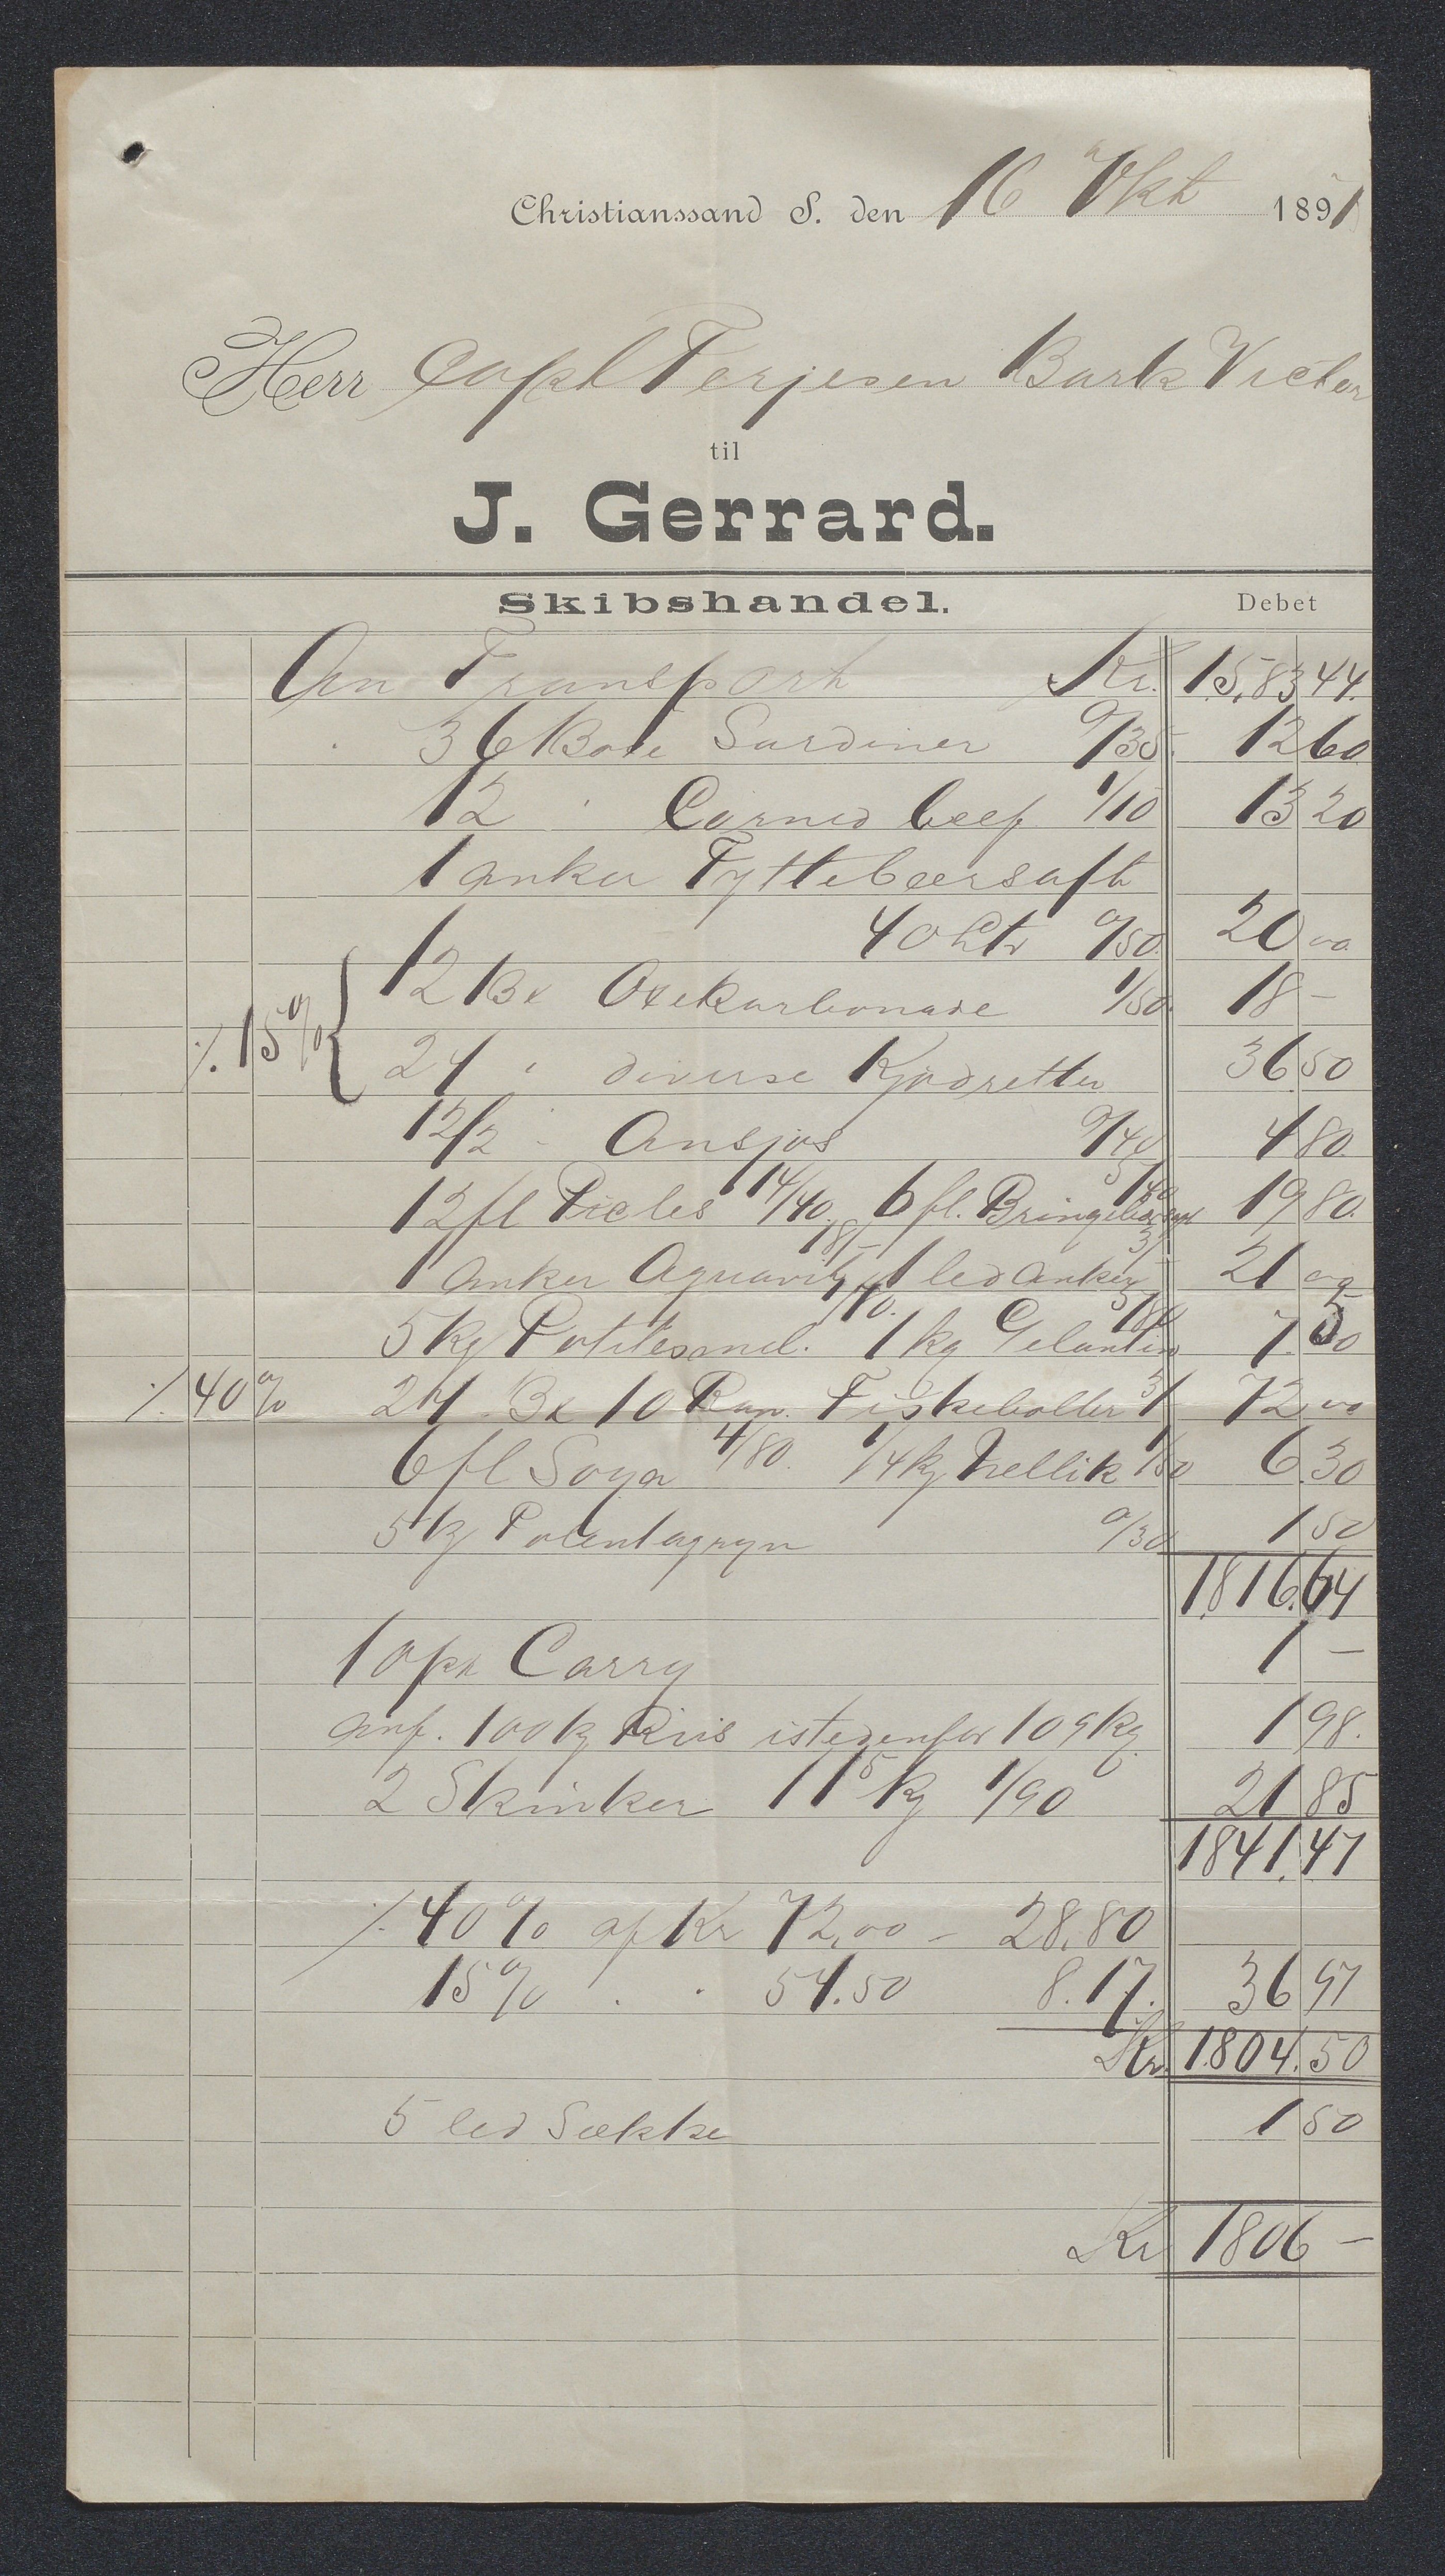 Christianssand S. den 16 Okt 1891
Herr Capt Terjesen Bark Victor
til
J. Gerrard.
Skibshandel. Debet
An Transport Kr. 15,83 44.
36 Boxe Sardiner 0/35. 12 60
12 " Corned beef 1/10 13 20
1 anker Tyttebærsaft
40 Ltr 0/50. 20 00.
12 Bx Oxekarbonade 1/50. 18 –
./. 15% { 24 " diverse Kjødretter 36 50
12/2 " Ansjos 0/40 4 80.
12 fl Picles 14/40. 6 fl. Bringebær 5/40 19 80.
1 Anker Aquavit 18/– 1 led anker 3/ 21 00
5 kg Potitesmel. /70. 1 kg Gelantin 3/80 7. 50
./. 40% 24 Bx 10 Rap. Fiskeboller 3/ 72 00
6 fl Soya 4/80. 1/4 kg Nellik 1/50 6. 30
5 kg Potentagryn 0/30 1 50
1,816. 64
1 opk Carry 1 –
anf. 100 kg Riis istedenfor 109 kg 1 98.
2 Skinker 11⁵ kg 1/90 21 85
1841. 47
./. 40% af Kr 72,00 – 28,80
15% " " 54.50 8.17. 36 97
Kr. 1.804. 50
5 led Sække 1 50
Kr 1806 –